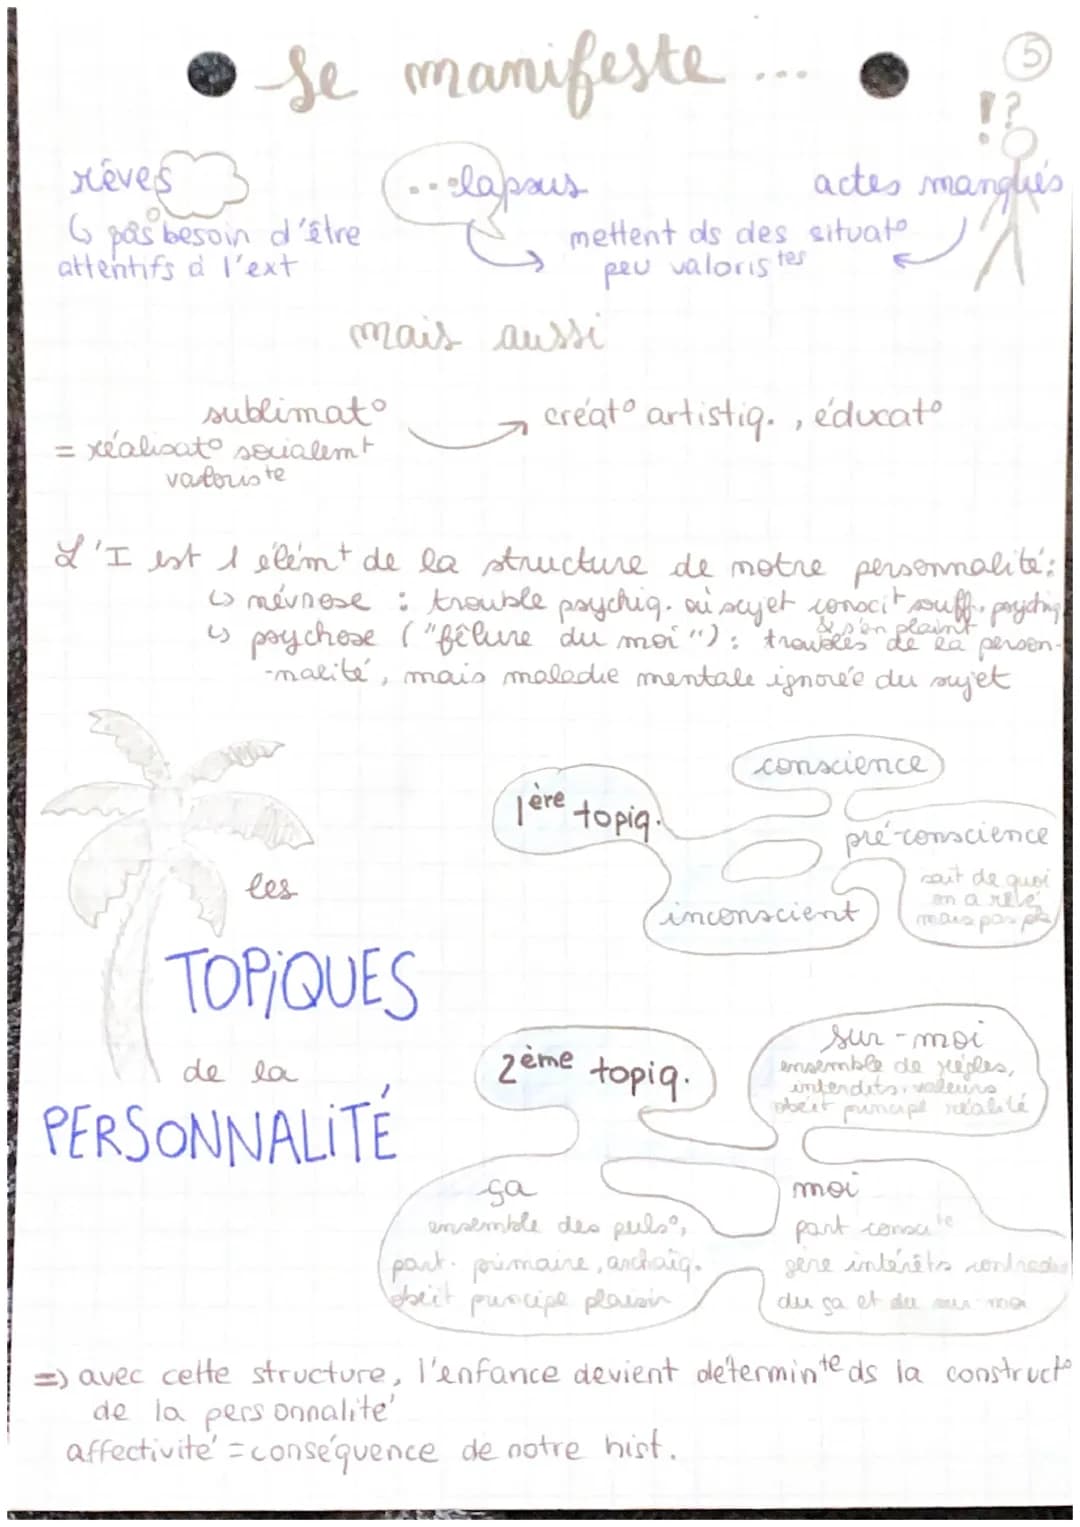 5
Se manifeste ...
rêves
...lapsus
actes manqués
!?
↳ pas besoin d'être
attentifs à l'ext
mettent ds des situat°
peu valoris^tes
mais aussi
sublimat°
= réalisat° socialem^t
valoris^te
créat° artistiq. , éducat°
L'I est 1 élém^t de la structure de notre personnalité :
↳ névrose : trouble psychiq. où sujet conscit souff. psychiq
& s'en plaint
↳ psychose ("fêlure du moi") : troubles de la person-
-nalité, mais maladie mentale ignorée du sujet
les
TOPiQUES
de la
PERSONNALiTÉ
1ère topiq.
conscience
pré-conscience
sait de quoi
on a rêvé
mais pas plus
inconscient
2ème topiq.
sur-moi
ensemble de règles,
interdits, valeurs
obéit principe réalité
ça
ensemble des puls°,
part. primaire, archaïq.
obéit principe plaisir
moi
part consci^te
gère intérêts contradic
du ça et du sur-moi
=> avec cette structure, l'enfance devient détermin^te ds la construct°
de la personnalité
affectivité = conséquence de notre hist.